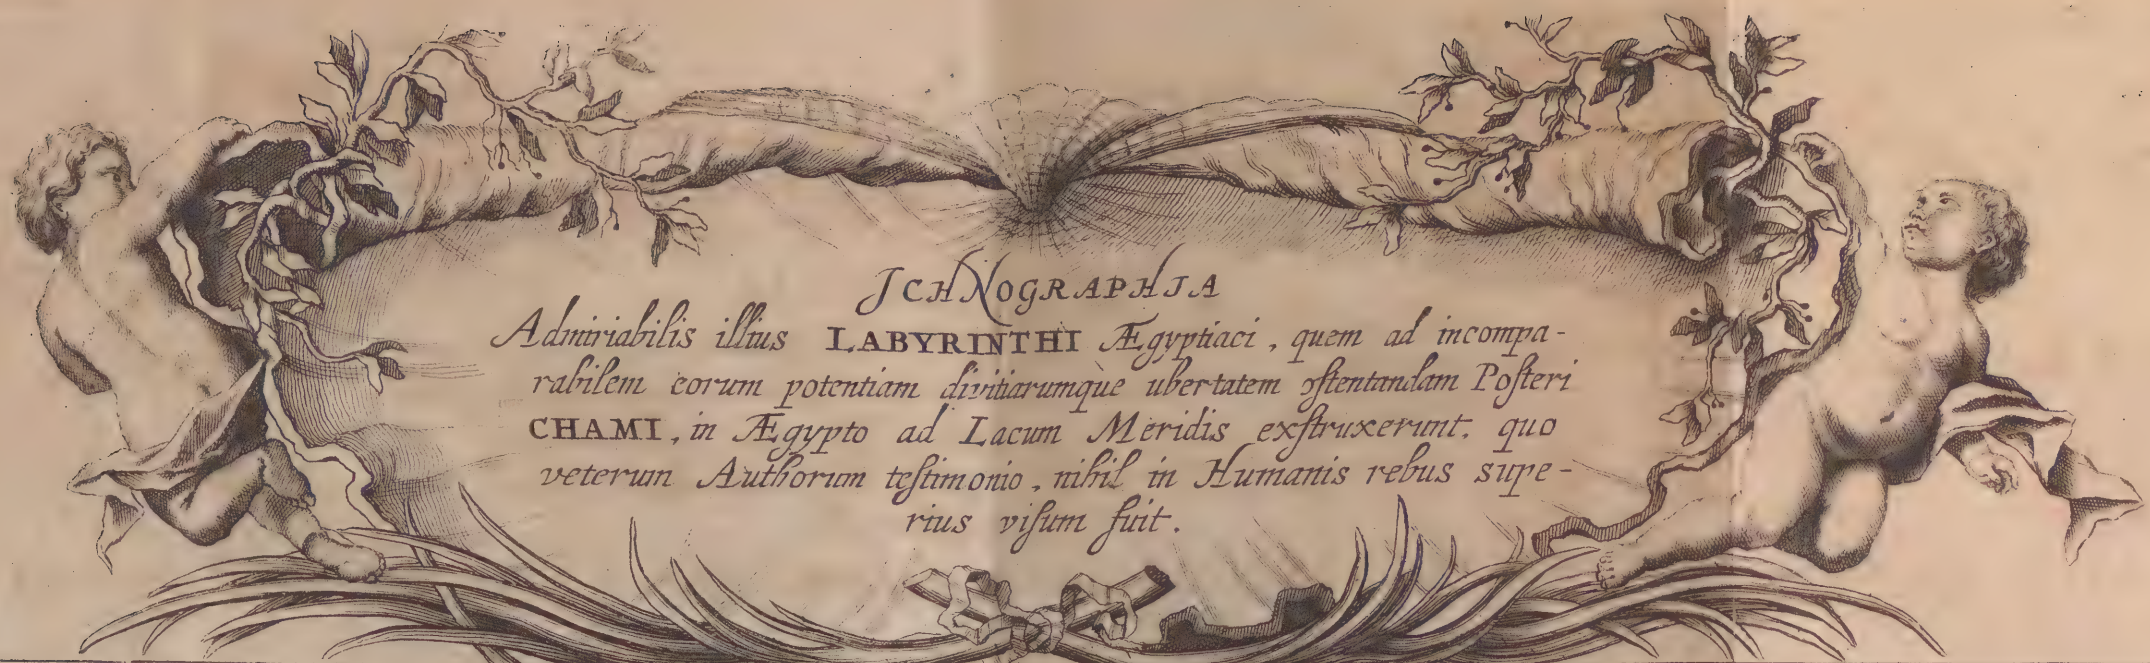 ICHNOGRAPHIA
Admiriabilis illius LABYRINTHI Ægyptiaci, quem ad incompa-
rabilem eorum potentiam divitiarumquè ubertatem ostentandam Posteri
CHAMI, in Ægypto ad Lacum Meridis exstruxerunt. quo
veterum Authorum testimonio, nihil in Humanis rebus supe-
rius visum fuit.